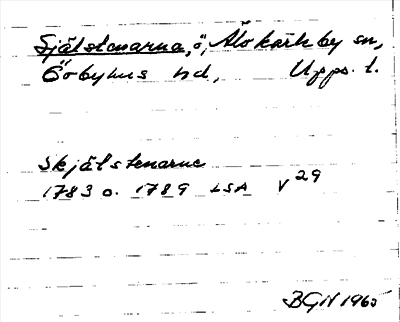 Själstenarna, ö, Älvkarleby sn,
Örbyhus hd, Upps. l.
Skjälstenarne
1783 o. 1789 LSA V 29
BGN 1965